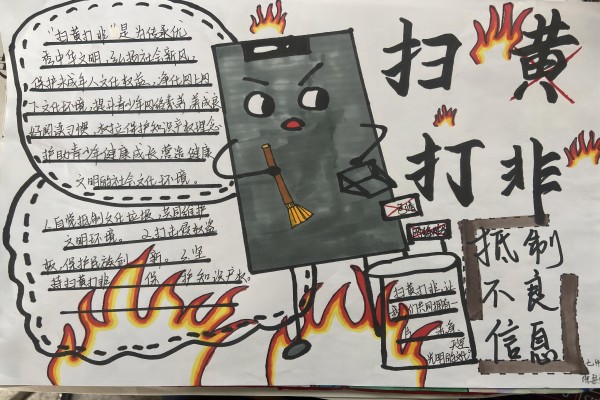 扫黄
打非
"扫黄打非"是为传承优
秀中华文明,弘扬社会新风,
保护未成年人文化权益、净化网上网
下文化环境,提升青少年网络素养,养成良
好网络习惯,树立保护知识产权理念
护助青少年健康成长营造健康
文明的社会文化环境。
1.自觉抵制文化垃圾,共同维护
文明环境。 2.打击侵权盗
版,保护民族创新。3.坚
持扫黄打非 保护知识产权。
抵制
不良
信息
扫黄打非,让